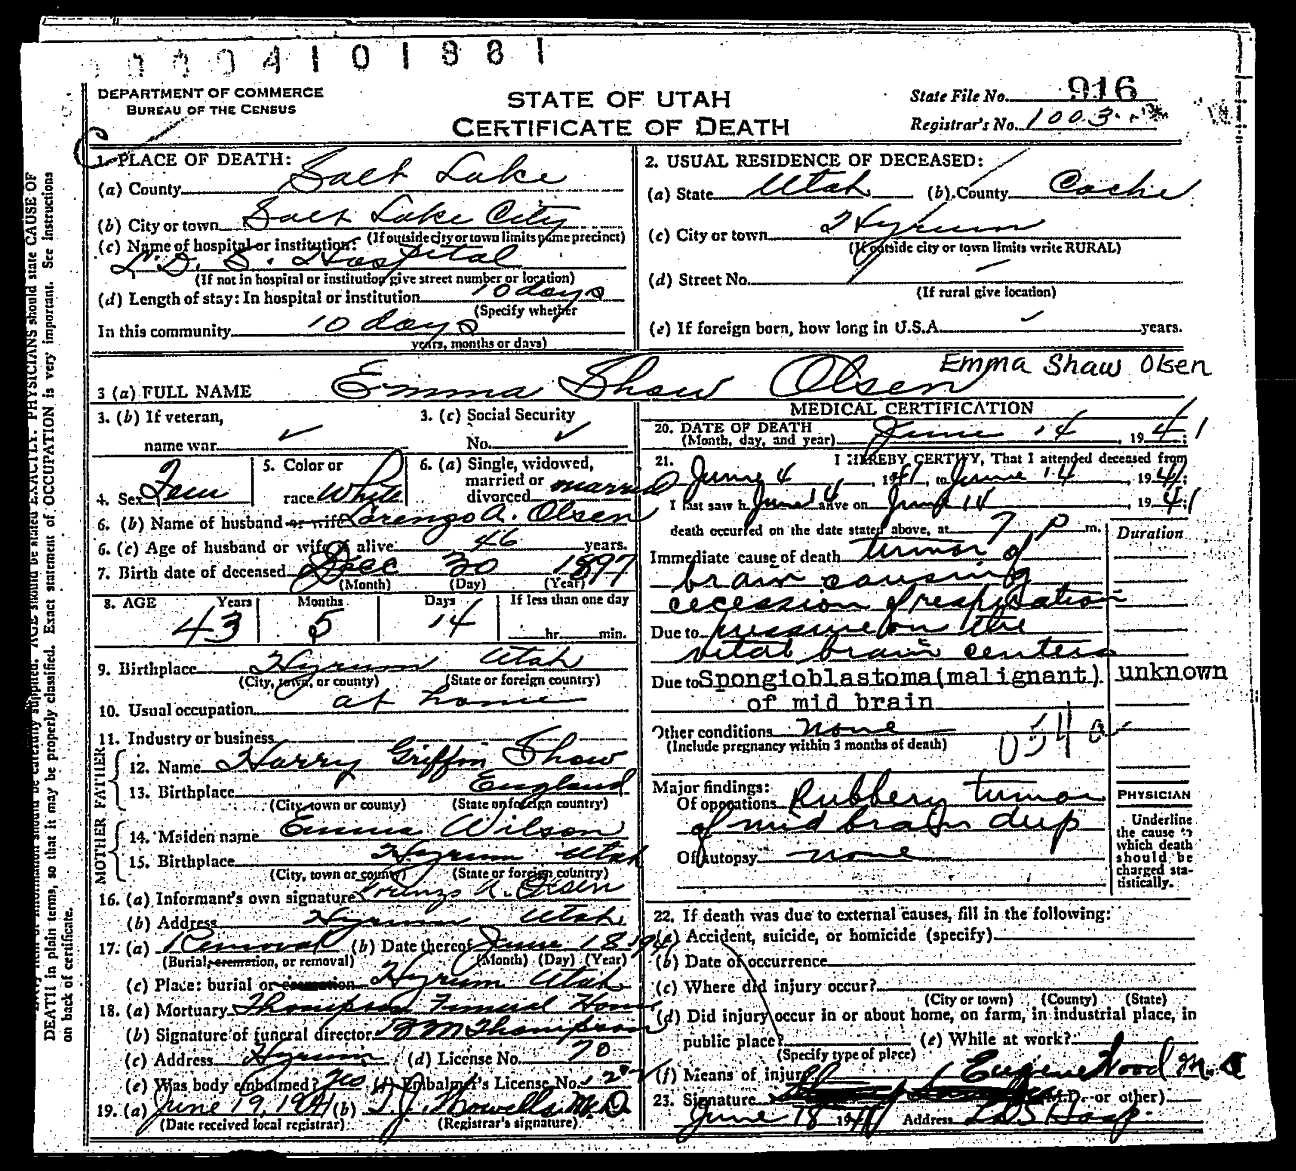 0004101881
DEPARTMENT OF COMMERCE
BUREAU OF THE CENSUS
STATE OF UTAH
CERTIFICATE OF DEATH
State File No. 916
Registrar's No. 1003
1. PLACE OF DEATH:
(a) County Salt Lake
(b) City or town Salt Lake City
(If outside city or town limits name precinct)
(c) Name of hospital or institution:
L. D. S. Hospital
(If not in hospital or institution give street number or location)
(d) Length of stay: In hospital or institution 10 days
(Specify whether
In this community 10 days
years, months or days)
2. USUAL RESIDENCE OF DECEASED:
(a) State Utah (b) County Cache
(c) City or town Hyrum
(If outside city or town limits write RURAL)
(d) Street No.
(If rural give location)
(e) If foreign born, how long in U.S.A. years.
3 (a) FULL NAME Emma Shaw Olsen Emma Shaw Olsen
3. (b) If veteran,
name war
3. (c) Social Security
No.
4. Sex Fem
5. Color or
race White
6. (a) Single, widowed,
married or
divorced married
6. (b) Name of husband or wife Lorenzo A. Olsen
6. (c) Age of husband or wife if alive 46 years.
7. Birth date of deceased Dec 30 1897
(Month) (Day) (Year)
8. AGE Years Months Days If less than one day
43 5 14 hr. min.
9. Birthplace Hyrum Utah
(City, town, or county) (State or foreign country)
10. Usual occupation at home
11. Industry or business
FATHER
12. Name Harry Griffin Shaw
13. Birthplace England
(City, town or county) (State or foreign country)
MOTHER
14. Maiden name Emma Wilson
15. Birthplace Hyrum Utah
(City, town or county) (State or foreign country)
16. (a) Informant's own signature Lorenzo A. Olsen
(b) Address Hyrum Utah
17. (a) Removal (b) Date thereof June 18 1941
(Burial, cremation, or removal) (Month) (Day) (Year)
(c) Place: burial or cremation Hyrum Utah
18. (a) Mortuary Thompson Funeral Home
(b) Signature of funeral director B M Thompson
(c) Address Hyrum (d) License No. 70
(e) Was body embalmed? Yes (f) Embalmer's License No.
19. (a) June 19, 1941 (b) T. J. Howells M.D.
(Date received local registrar) (Registrar's signature)
MEDICAL CERTIFICATION
20. DATE OF DEATH
(Month, day, and year) June 14, 1941
21. I HEREBY CERTIFY, That I attended deceased from
June 4, 1941, to June 14, 1941
I last saw h alive on June 14, 1941
death occurred on the date stated above, at 7 P m.
Duration
Immediate cause of death tumor of
brain causing
cecession of respiration
Due to pressure on the
vital brain centers
Due to Spongioblastoma(malignant) unknown
of mid brain
Other conditions none
(Include pregnancy within 3 months of death)
054a
Major findings:
Of operations Rubbery tumor
of mid brain deep
Of autopsy none
PHYSICIAN
Underline
the cause to
which death
should be
charged sta-
tistically.
22. If death was due to external causes, fill in the following:
(a) Accident, suicide, or homicide (specify)
(b) Date of occurrence
(c) Where did injury occur?
(City or town) (County) (State)
(d) Did injury occur in or about home, on farm, in industrial place, in
public place? (e) While at work?
(Specify type of place)
(f) Means of injury
Eugene Wood M.D.
23. Signature (M.D. or other)
June 18 1941 Address LDS Hosp.
DEATH in plain terms, so that it may be properly classified. Exact statement of OCCUPATION is very important. See instructions
on back of certificate.